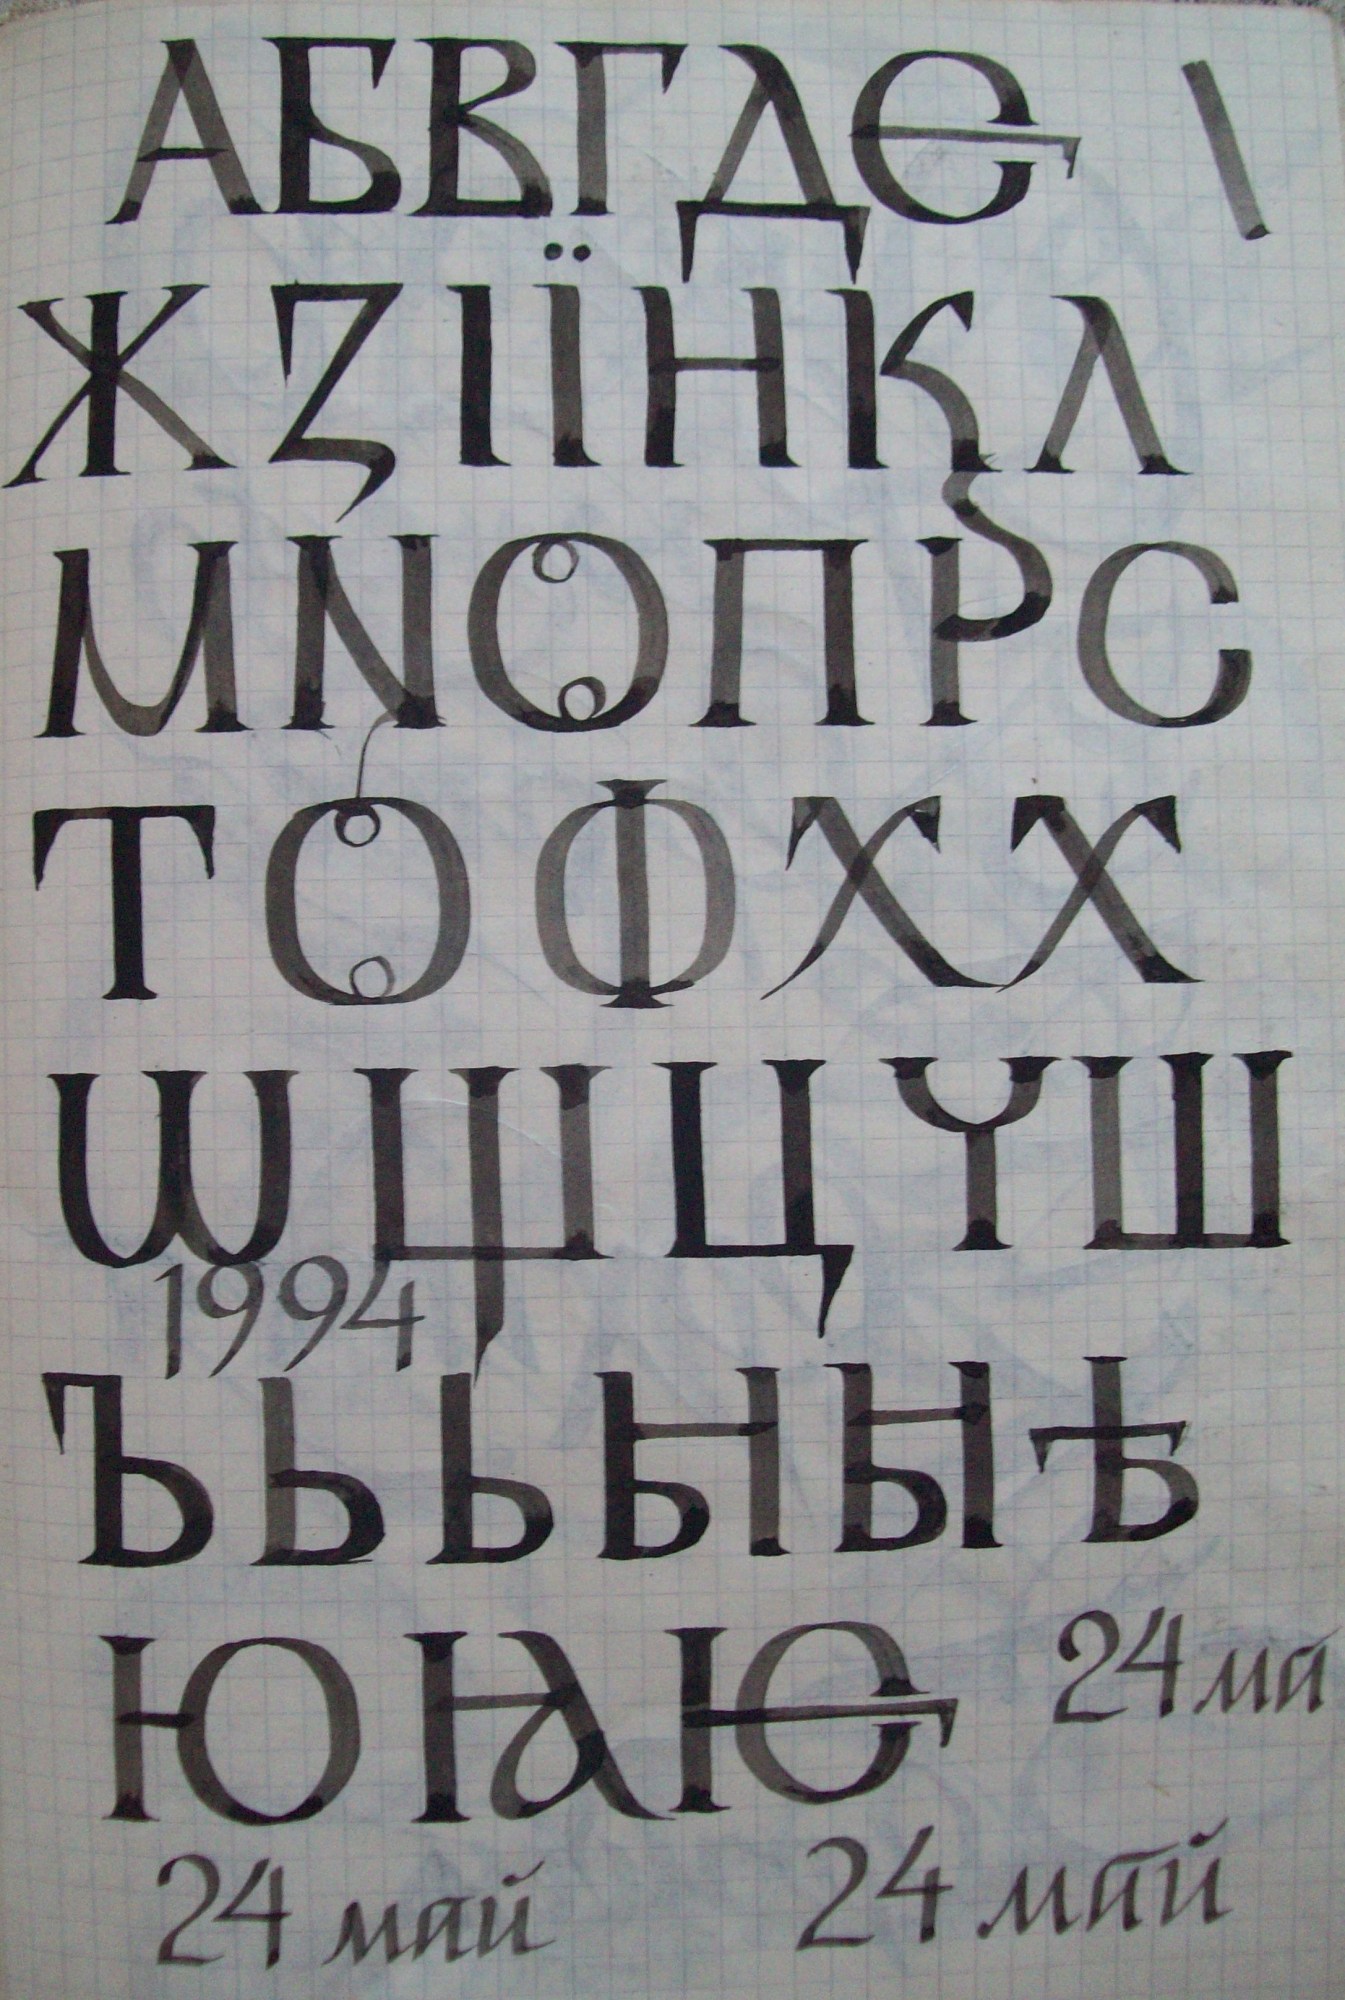 АБВГДЄ
ЖꙀІЇНКЛ
МNОПРС
ТОФХХ
ѠЩЦЧШ
1994
ЪЬЬЫЫѢ
ЮꙖѤ
24 ма
24 май
24 май